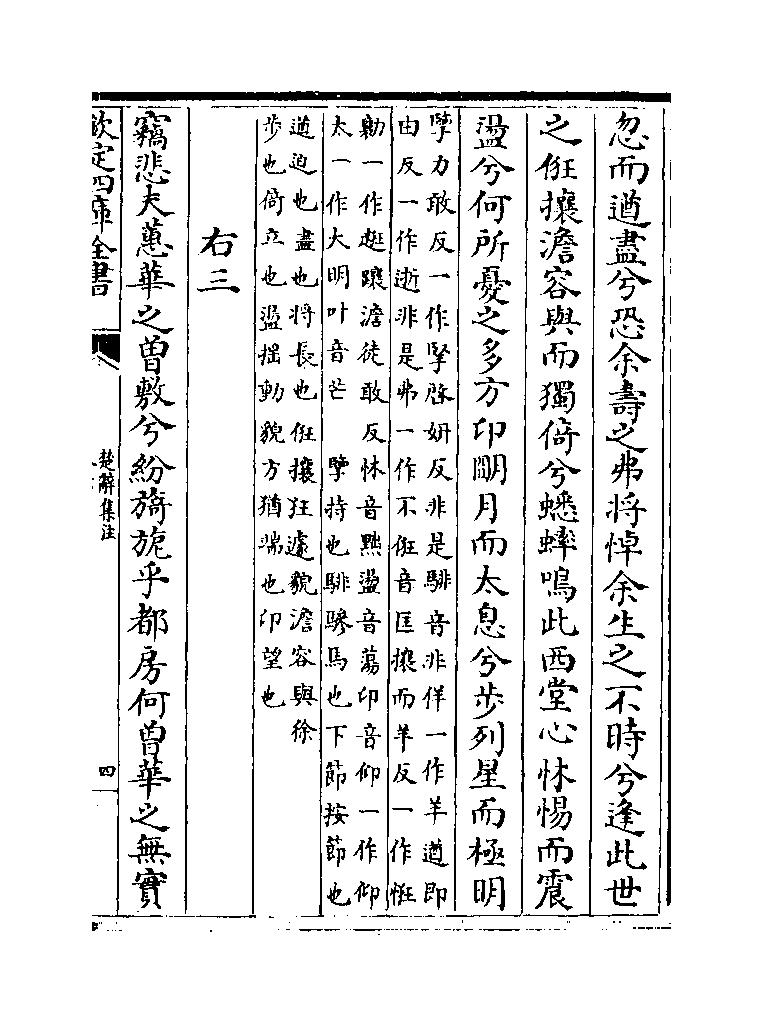 忽而遒盡兮恐余壽之弗將悼余生之不時兮逢此世
之俇攘澹容與而獨倚兮蟋蟀鳴此西堂心怵惕而震
盪兮何所憂之多方卬明月而太息兮步列星而極明
擥力敢反一作擥啓妍反非是騑音非佯一作羊遒即
由反一作逝非是弗一作不俇音匡攘而羊反一作恇
勷一作趯躟澹徒敢反怵音黜盪音蕩卬音仰一作仰
太一作大明叶音芒　擥持也騑驂馬也下節按節也
遒迫也盡也將長也俇攘狂遽貌澹容與徐
步也倚立也盪揺動貌方猶端也卬望也
右三
竊悲夫蕙華之曽敷兮紛旖旎乎都房何曽華之無實
欽定四庫全書
楚辭集注
四